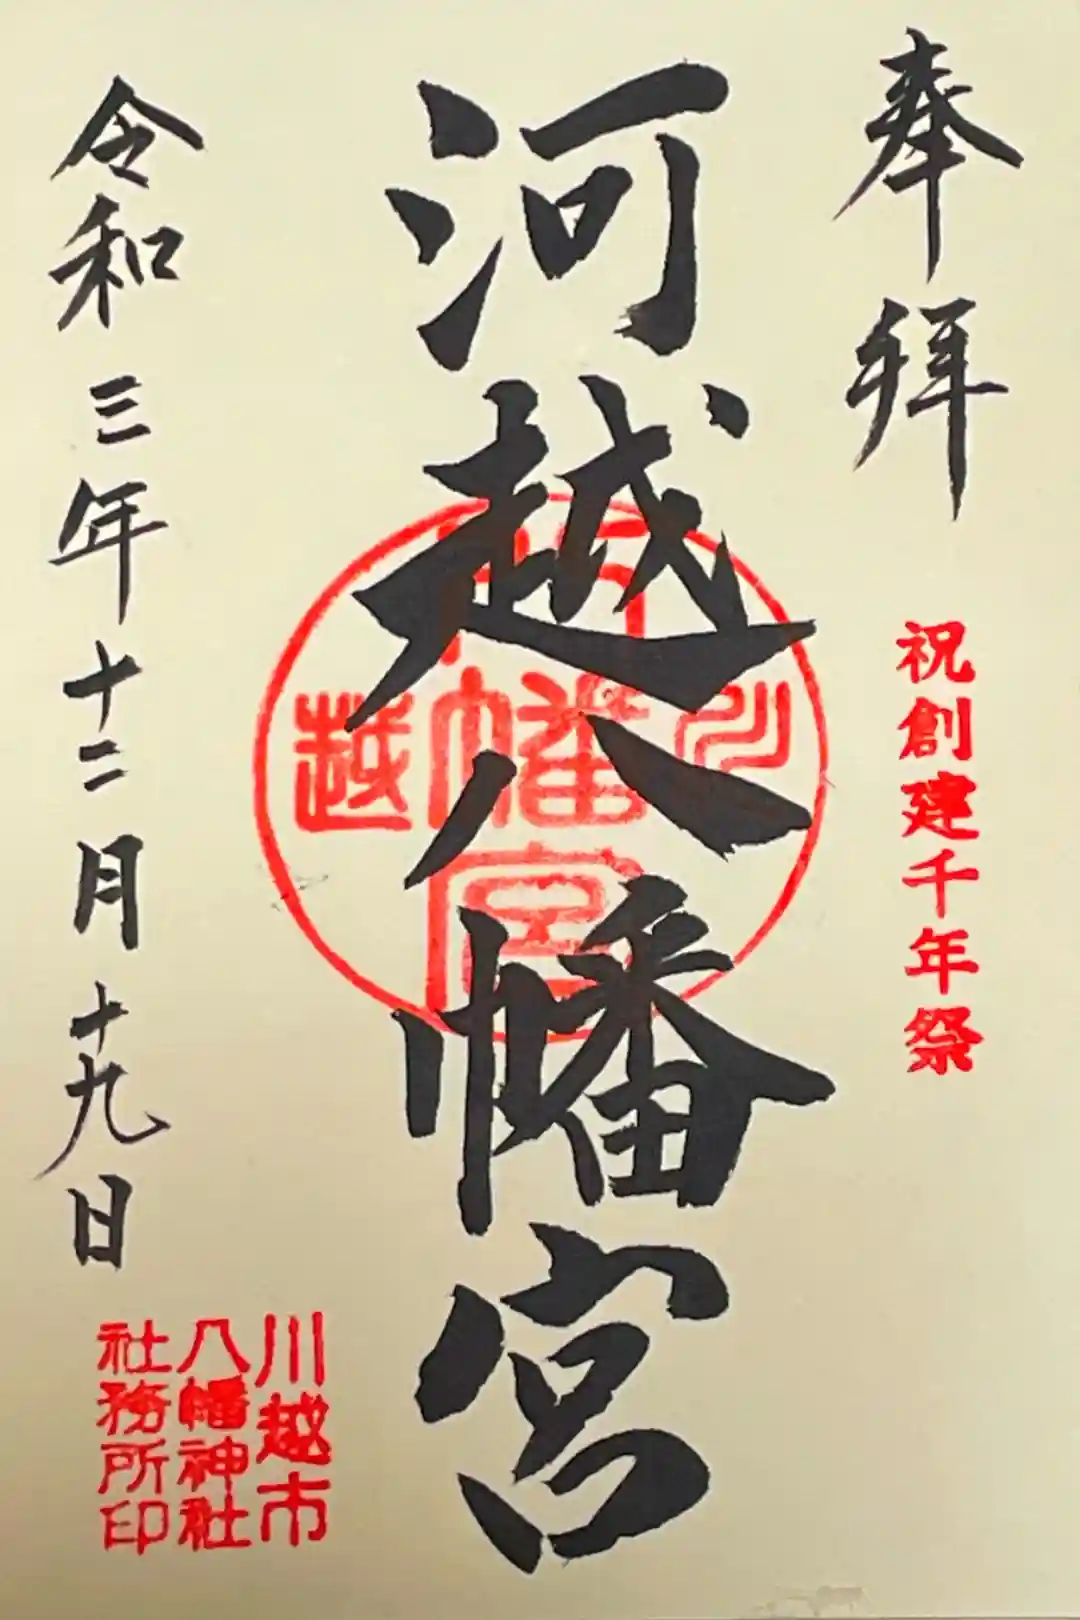 奉拝
祝創建千年祭
河越八幡宮
川越
八幡宮
令和三年十二月十九日
川越市
八幡神社
社務所印